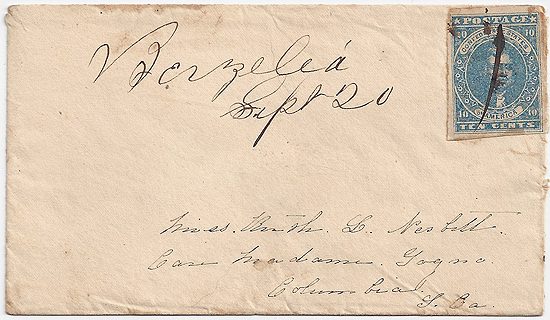 Berzeliá
Sept 20
POSTAGE
CONFEDERATE STATES
10 10
OF AMERICA
10 10
TEN CENTS
Miss. Ruth. L. Nesbitt.
Care Madame. Togno.
Columbia.
S. Ca.